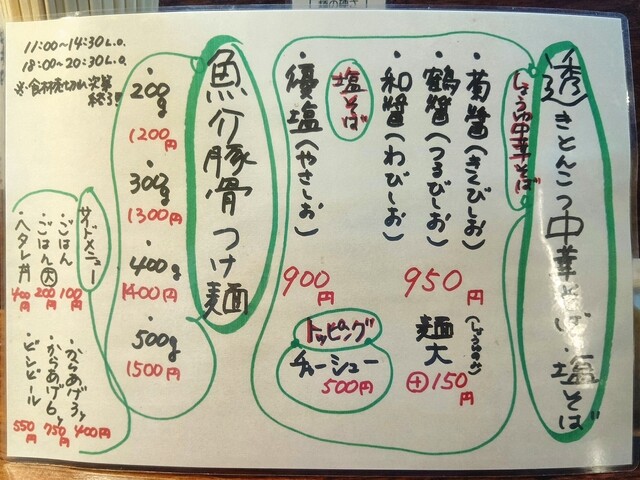 麺の硬さ
透きとんこつ中華そば・塩そば
しょうゆ中華そば
・菊醬(きくびしお)
・鶴醬(つるびしお)
・和醬(わびしお)
950円
塩そば
・優塩(やさしお)
900円
麺大
(しょうゆのみ)
⊕150円
トッピング
チャーシュー
500円
魚介豚骨つけ麺
・200g
1200円
・300g
1300円
・400g
1400円
・500g
1500円
11:00~14:30 L.O.
18:00~20:30 L.O.
※食材売切れ次第
終了!!
サイドメニュー
・ごはん
100円
・ごはん大
200円
・ヘタレ丼
400円
・からあげ3ヶ
400円
・からあげ6ヶ
750円
・ビンビール
550円